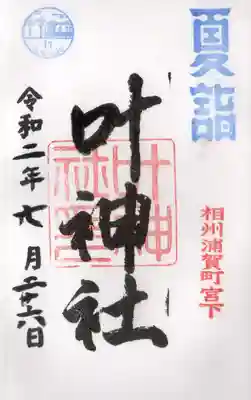 夏詣
相州浦賀町宮下
叶神社
叶神社璽
令和二年七月二十六日